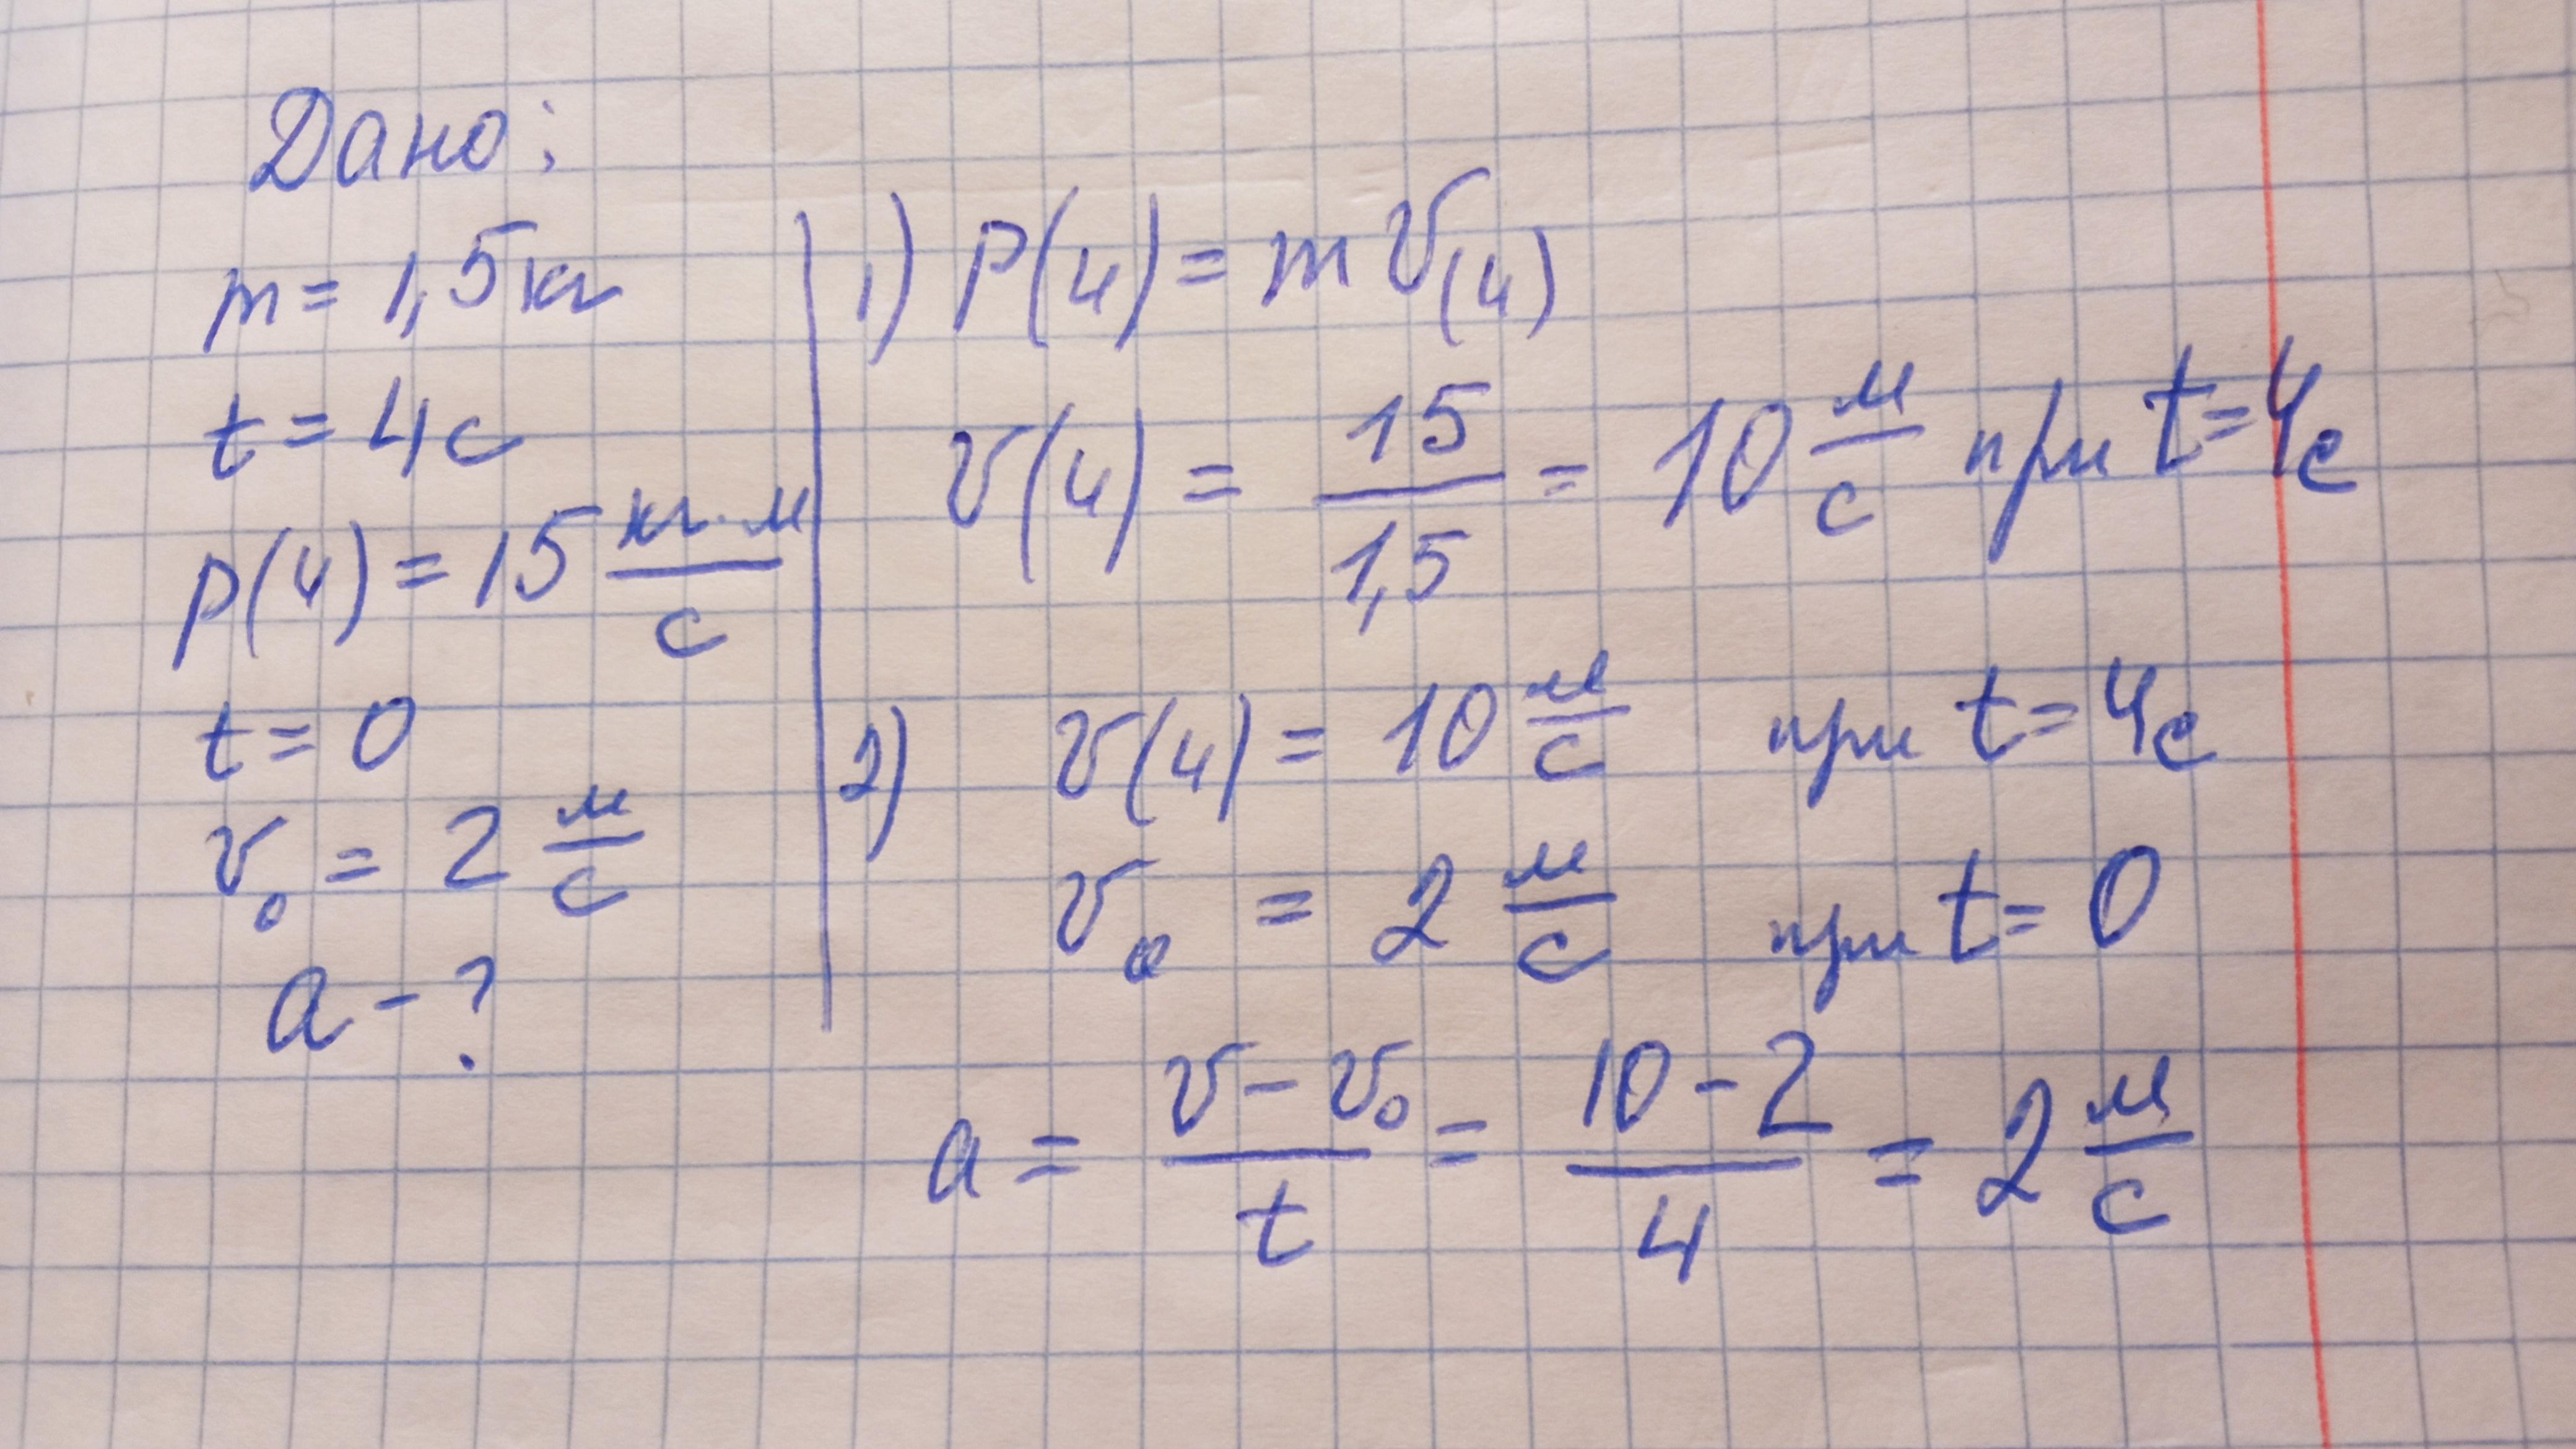 Дано:
m = 1,5 кг
t = 4 с
p(4) = 15 кг·м/с
t = 0
v₀ = 2 м/с
a - ?
1) P(4) = m v(4)
v(4) = 15/1,5 = 10 м/с при t = 4с
2) v(4) = 10 м/с при t = 4с
v₀ = 2 м/с при t = 0
a = (v - v₀)/t = (10 - 2)/4 = 2 м/с